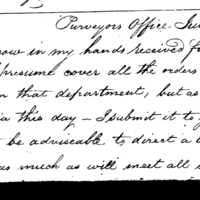 Purveyors Office
now in my hands received
presume cover all the orders
that department, but as
this day — I submit it to
be adviseable to direct a
as much as will meet all